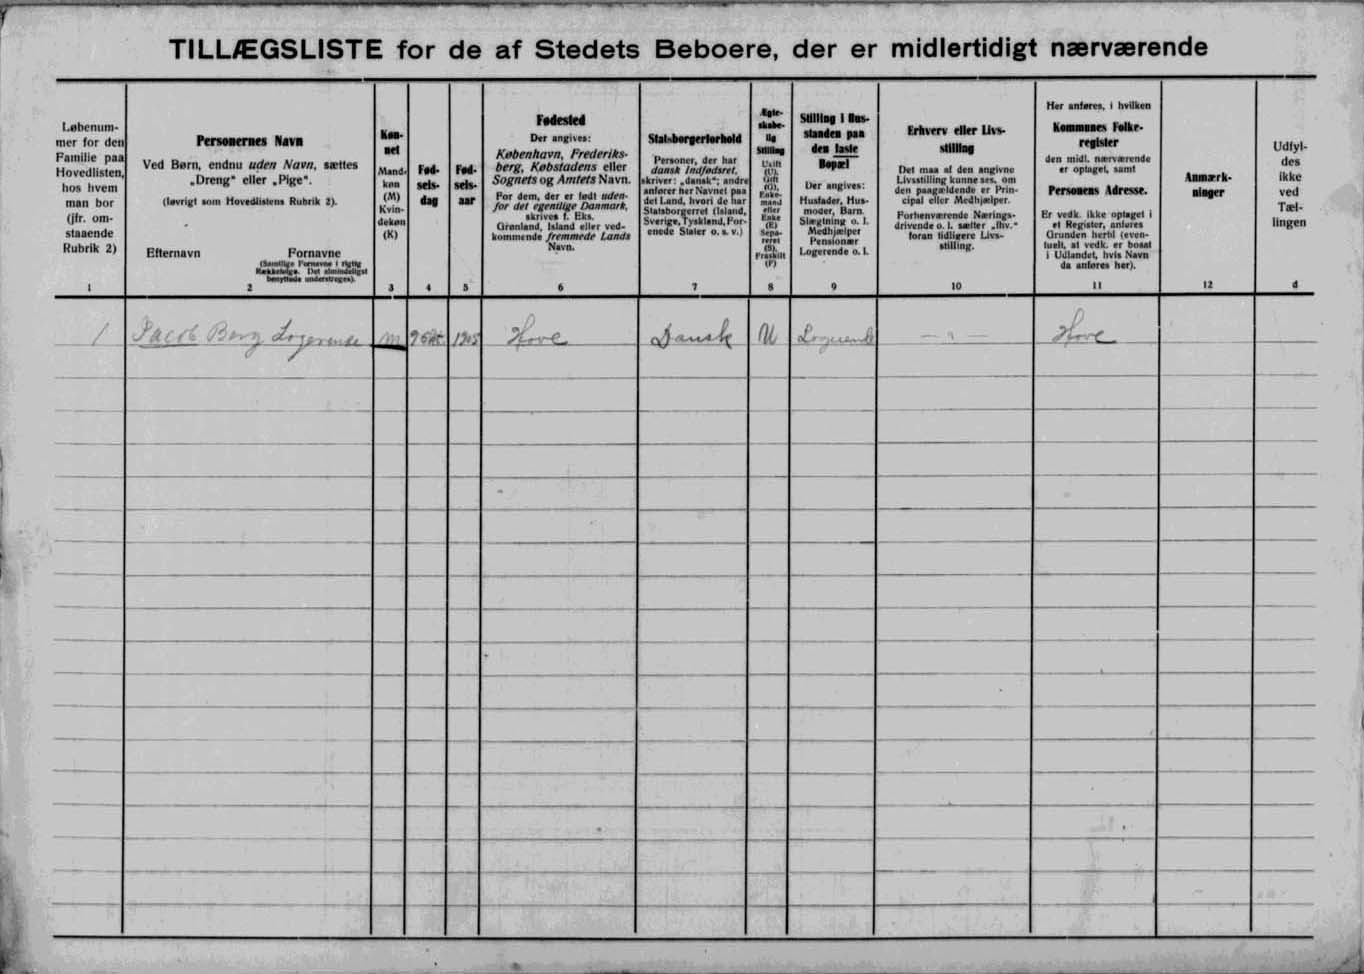 TILLÆGSLISTE for de af Stedets Beboere, der er midlertidigt nærværende
Løbenum-
mer for den
Familie paa
Hovedlisten,
hos hvem
man bor
(jfr. om-
staaende
Rubrik 2)
1
Personernes Navn
Ved Børn, endnu uden Navn, sættes
„Dreng“ eller „Pige“.
(Iøvrigt som Hovedlistens Rubrik 2).
Efternavn Fornavne
(Samtlige Fornavne i rigtig
Rækkefølge. Det almindeligst
benyttede understreges).
2
Køn-
net
Mand-
køn
(M)
Kvin-
dekøn
(K)
3
Fød-
sels-
dag
4
Fød-
sels-
aar
5
Fødested
Der angives:
København, Frederiks-
berg, Købstadens eller
Sognets og Amtets Navn.
For dem, der er født uden-
for det egentlige Danmark,
skrives f. Eks.
Grønland, Island eller ved-
kommende fremmede Lands
Navn.
6
Statsborgerforhold
Personer, der har
dansk Indfødsret,
skriver: „dansk“; andre
anfører her Navnet paa
det Land, hvori de har
Statsborgerret (Island,
Sverige, Tyskland, For-
enede Stater o. s. v.)
7
Ægte-
skabe-
lig
Stilling
Ugift
(U),
Gift
(G),
Enke-
mand
eller
Enke
(E)
Sepa-
reret
(S),
Fraskilt
(F)
8
Stilling i Hus-
standen paa
den faste
Bopæl
Der angives:
Husfader, Hus-
moder, Barn,
Slægtning o. l.
Medhjælper
Pensionær
Logerende o. l.
9
Erhverv eller Livs-
stilling
Det maa af den angivne
Livsstilling kunne ses, om
den paagældende er Prin-
cipal eller Medhjælper.
Forhenværende Nærings-
drivende o. l. sætter „fhv.“
foran tidligere Livs-
stilling.
10
Her anføres, i hvilken
Kommunes Folke-
register
den midl. nærværende
er optaget, samt
Personens Adresse.
Er vedk. ikke optaget i
et Register, anføres
Grunden hertil (even-
tuelt, at vedk. er bosat
i Udlandet, hvis Navn
da anføres her).
11
Anmærk-
ninger
12
Udfyl-
des
ikke
ved
Tæl-
lingen
d
1 Jacob Berg Logerende M 1905 Hove Dansk U Logerende — " — Hove